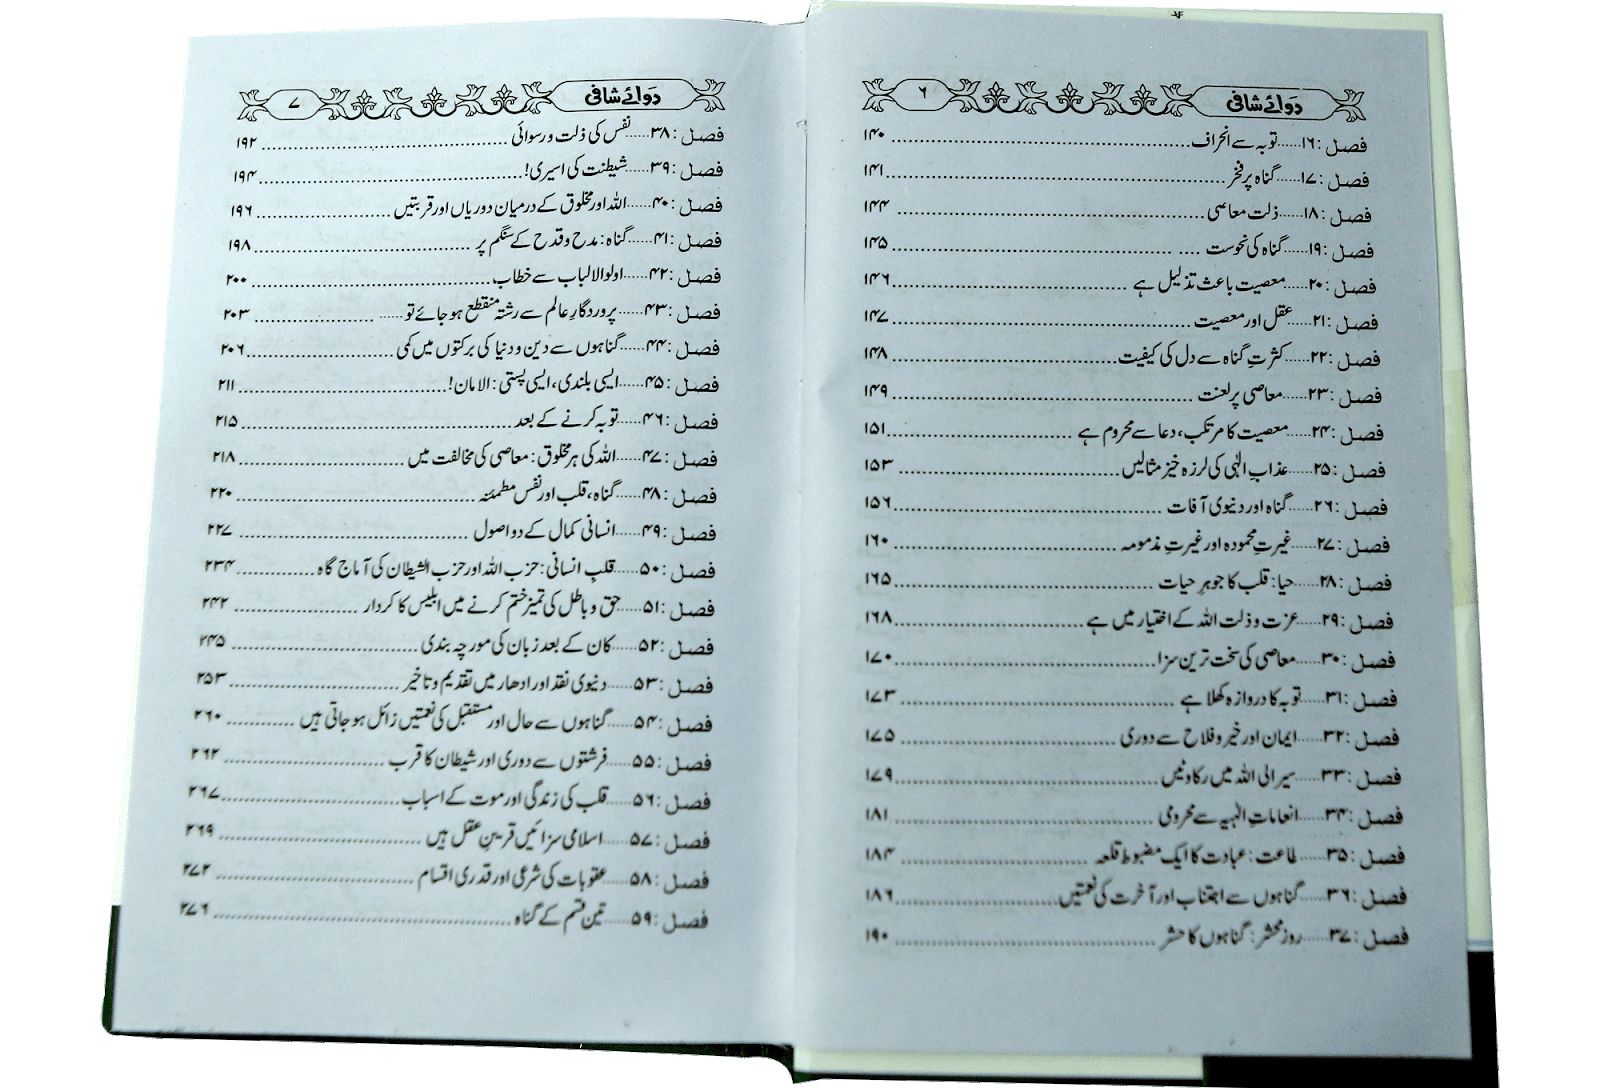 دوائے شافی ۶
فصل :۱۶......توبہ سے انحراف ۱۴۰
فصل :۱۷......گناہ پر فخر ۱۴۱
فصل :۱۸......ذلت معاصی ۱۴۴
فصل :۱۹......گناہ کی نحوست ۱۴۵
فصل :۲۰......معصیت باعث تذلیل ہے ۱۴۶
فصل :۲۱......عقل اور معصیت ۱۴۷
فصل :۲۲......کثرتِ گناہ سے دل کی کیفیت ۱۴۸
فصل :۲۳......معاصی پر لعنت ۱۴۹
فصل :۲۴......معصیت کا مرتکب، دعا سے محروم ہے ۱۵۱
فصل :۲۵......عذابِ الٰہی کی لرزہ خیز مثالیں ۱۵۳
فصل :۲۶......گناہ اور دنیوی آفات ۱۵۶
فصل :۲۷......غیرتِ محمودہ اور غیرتِ مذمومہ ۱۶۰
فصل :۲۸......حیا: قلب کا جوہرِ حیات ۱۶۵
فصل :۲۹......عزت و ذلت اللہ کے اختیار میں ہے ۱۶۸
فصل :۳۰......معاصی کی سخت ترین سزا ۱۷۰
فصل :۳۱......توبہ کا دروازہ کھلا ہے ۱۷۳
فصل :۳۲......ایمان اور خیر و فلاح سے دوری ۱۷۵
فصل :۳۳......سیر الی اللہ میں رکاوٹیں ۱۷۹
فصل :۳۴......انعاماتِ الٰہیہ سے محرومی ۱۸۱
فصل :۳۵......طاعت: عبادت کا ایک مضبوط قلعہ ۱۸۴
فصل :۳۶......گناہوں سے اجتناب اور آخرت کی نعمتیں ۱۸۶
فصل :۳۷......روزِ محشر: گناہوں کا حشر ۱۹۰
دوائے شافی ۷
فصل :۳۸......نفس کی ذلت و رسوائی ۱۹۲
فصل :۳۹......شیطنت کی اسیری! ۱۹۴
فصل :۴۰......اللہ اور مخلوق کے درمیان دوریاں اور قربتیں ۱۹۶
فصل :۴۱......گناہ: مدح و قدح کے سنگم پر ۱۹۸
فصل :۴۲......اولوالالباب سے خطاب ۲۰۰
فصل :۴۳......پروردگارِ عالم سے رشتہ منقطع ہو جائے تو...... ۲۰۳
فصل :۴۴......گناہوں سے دین و دنیا کی برکتوں میں کمی ۲۰۶
فصل :۴۵......ایسی بلندی، ایسی پستی: الامان! ۲۱۱
فصل :۴۶......توبہ کرنے کے بعد ۲۱۵
فصل :۴۷......اللہ کی ہر مخلوق: معاصی کی مخالفت میں ۲۱۸
فصل :۴۸......گناہ، قلب اور نفس مطمئنہ ۲۲۰
فصل :۴۹......انسانی کمال کے دو اصول ۲۲۷
فصل :۵۰......قلبِ انسانی: حزب اللہ اور حزب الشیطان کی آماج گاہ ۲۳۴
فصل :۵۱......حق و باطل کی تمیز ختم کرنے میں ابلیس کا کردار ۲۴۲
فصل :۵۲......کان کے بعد زبان کی مورچہ بندی ۲۴۵
فصل :۵۳......دنیوی نقد اور ادھار میں تقدیم و تاخیر ۲۵۳
فصل :۵۴......گناہوں سے حال اور مستقبل کی نعمتیں زائل ہو جاتی ہیں ۲۶۰
فصل :۵۵......فرشتوں سے دوری اور شیطان کا قرب ۲۶۲
فصل :۵۶......قلب کی زندگی اور موت کے اسباب ۲۶۷
فصل :۵۷......اسلامی سزائیں قرینِ عقل ہیں ۲۶۹
فصل :۵۸......عقوبات کی شرعی اور قدری اقسام ۲۷۲
فصل :۵۹......تین قسم کے گناہ ۲۷۶